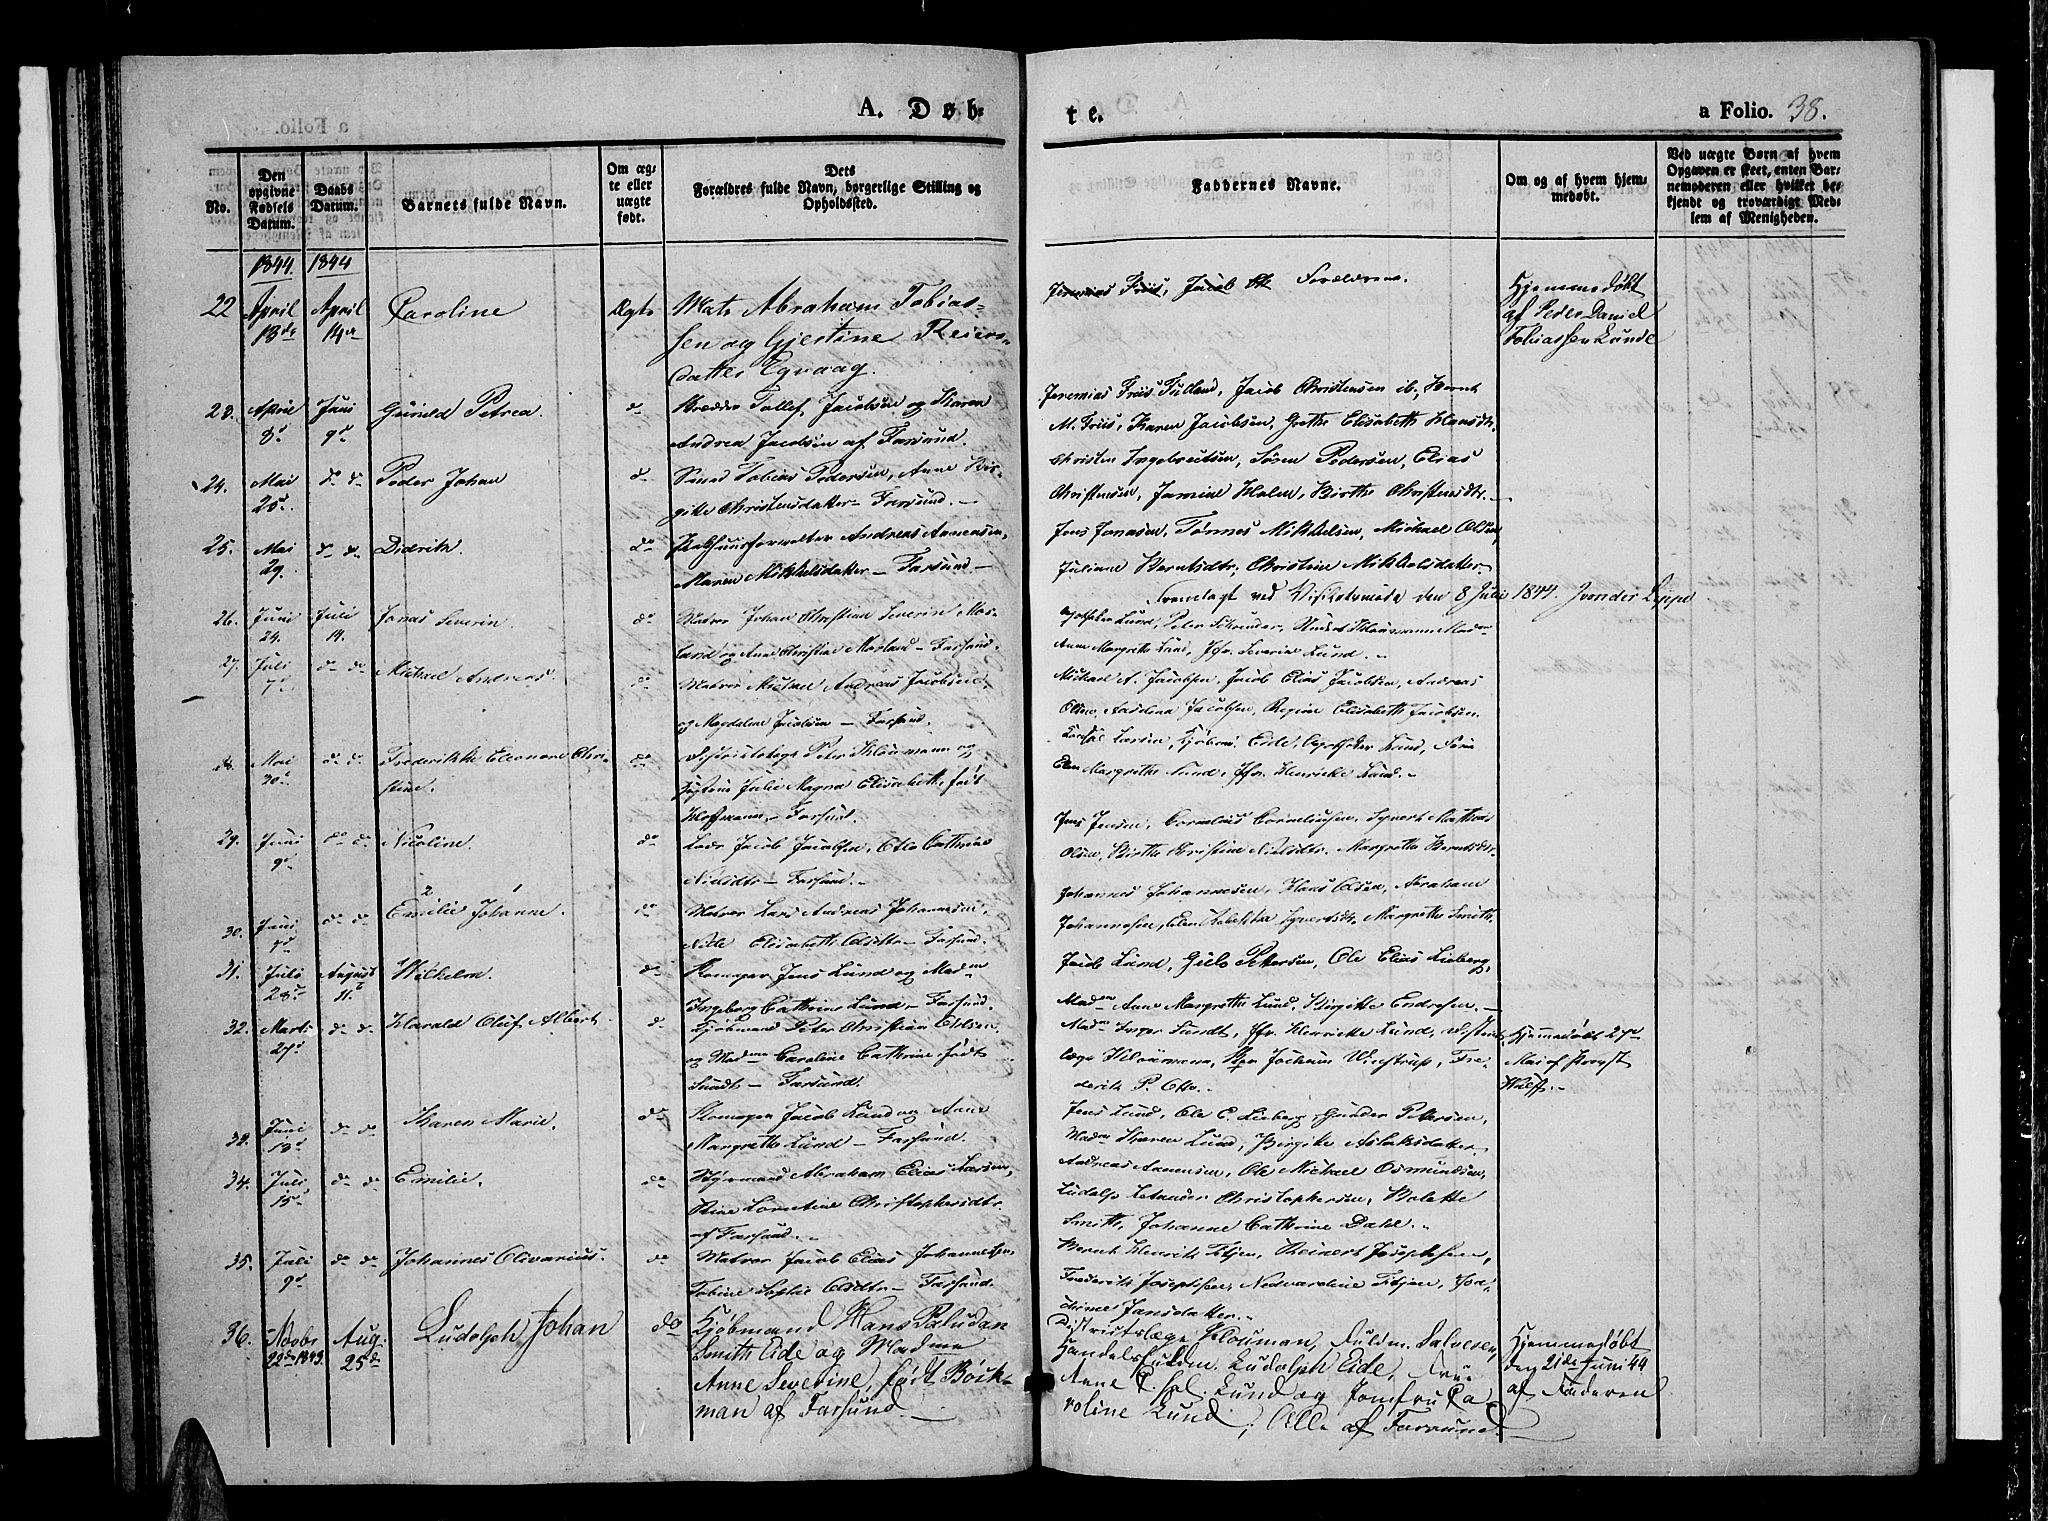 A. Døb-
te.
a Folio. 38.
No.
Den
opgivne
Fødsels
Datum.
Daabs
Datum.
Barnets fulde Navn.
Om æg-
te eller
uægte
født.
Dets
Forældres fulde Navn, borgerlige Stilling og
Opholdssted.
Faddernes Navne.
Om og af hvem hjem-
medøbt.
Ved uægte Børn af hvem
Opgaven er skeet, enten Bar-
nemoderen eller hvilket be-
kjendt og troværdigt Med-
lem af Menigheden.
1844. 1844
22 April 13de April 14de Caroline Ægte Mats Abraham Tobias-
sen og Gjertine Reiers-
datter Egvaag.
Jeremias Friis, Jacob Forældrene.
Hjemmedøbt
af Peder Daniel
Tobiassen Lunde
23. April 8d Juni 9d Gunild Petrea. d. Tollef Jacobsen og Karen
Andrea Jacobsen af Farsund.
Jeremias Friis, Jacob Christensen ib.,
M. Friis, Karen Jacobsen, Grethe Elisabeth
24. Mai 25d. d. d. Peder Johan d. Tobias Pedersen, Anne Bir-
gitte Christensdatter – Farsund. –
Christen Ingebretsen, Søren Pedersen, Elias
Christensen, Birthe Christensdtr. –
25. Mai 29. d. d. Didrik. do Andreas Aanensen,
Maren Mikkelsdatter – Farsund. –
Jens Jonassen, Tønnes Mikkelsen, Michael Olsen,
Juliane Berntsdtr, Christine Mikkelsdatter.
Fremlagt ved Visitatsmøde den 8 Juli 1844.
26. Juni 24. Juli 14. Jonas Severin. do Matros Johan Christian Severin Mos-
land og Anne Christine Mosland – Farsund.
Lund, Peter
Anne Margrethe Lund, Jfr. Severine Lund. –
27. Juli 7d d. d. Michael Andreas. do Matros Michael Andreas Jacobsen,
og Magdalene Jacobsen – Farsund.
Michael A. Jacobsen, Jacob Elias Jacobsen, Andreas
Olsen, Jacobsen, Regine Elisabeth Jacobsen.
28. Mai 30d d. d. Frederikke Eleonore Chri-
stine. do Districtslæge Peter Klouman og
Julie Magna Elisabeth, født
Hoffmann – Farsund.
Larsen, Kjøbm. Eide, Apotheker Lund,
Margrethe Lund, Jfr. Henricke Lund. –
29. Juni 9d do do Nicoline. do Lods Jacob Jacobsen, Cathrine
Nielsdtr – Farsund. –
Jens Jensen, Cornelius Corneliussen, Syvert Mathias
Olsen, Birthe Kristine Nielsdtr. Margrethe Berntsdtr.
30. Juni d. d. Emilie 2 Johanne. do Matros Lars Andreas Johannesen,
Elisabeth Olsdtr – Farsund.
Johannes Johannesen, Klaus Olsen, Abraham
Johannesen, Elen Syvertsdtr, Margrethe Smith.
31. Juli 28d August 11. Wilhelm. do Jens Lund og Madm
Ingeborg Cathrine Lund – Farsund.
Jacob Lund, Pettersen, Ole Elias Lieberg,
Madm Anne Margrethe Lund, Birgitte Endresen. –
32. Marts 27d d. d. Harald Oluf Albert. d. Kjøbmand Peter Christian Olsen
og Madme Caroline Cathrine, født
Sundt – Farsund.
Madm Inger Sundt, Jfr. Henricke Lund, District-
læge Klouman, Jochum Winstrup, Fre-
derik P. Otto. –
Hjemmedøbt 27de
Mai af Provst
33. Juni 13d d. d. Maren Marie. do Jacob Lund og Anne
Margrethe Lund – Farsund.
Jens Lund, Ole E. Lieberg, Gunder Pettersen,
Madm Lund, Birgitte Aslaksdatter
34. Juli 15d do do Emilie. do Abraham Elias Larsen,
Stine Lorentine Christophersdtr.
af Farsund. –
Andreas Aanensen, Ole Michael Osmundsen,
Ludolf Christophersen, Bolette
Smith, Johanne Cathrine Dahl. –
35. Juli 9d do do Johannes Olivarius. do Matros Jacob Elias Johannesen,
Tobine Sophie Olsdtr – Farsund.
Bernt Henrik Josephsen,
Frederik Josephsen, Nedvardine
Jansdatter.
36. Novbr 22de 1843. Aug. 25de Ludolph Johan do Kjøbmand Hans Paludan
Smith Eide og Madme
Anne Severine, født Bøck-
man af Farsund. –
Districtslæge Klouman, Fuldm. Salvesen,
Handelsfuldm. Ludolph Eide,
Anne Lund og Jomfru Ca-
roline Lund; Alle af Farsund.
Hjemmedøbt
den 21de Juni 44
af Faderen